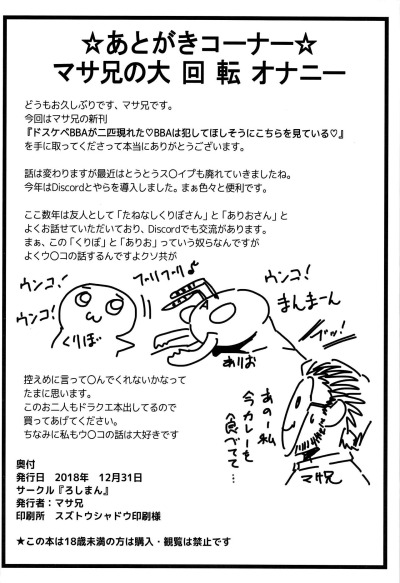 ☆あとがきコーナー☆
マサ兄の大 回 転 オナニー
どうもお久しぶりです、マサ兄です。
今回はマサ兄の新刊
『ドスケベBBAが二匹現れた♡BBAは犯してほしそうにこちらを見ている♡』
を手に取ってくださって本当にありがとうございます。
話は変わりますが最近はとうとうス〇イプも廃れていきましたね。
今年はDiscordとやらを導入しました。まぁ色々と便利です。
ここ数年は友人として「たねなしくりぼさん」と「ありおさん」と
よくお話させていただいており、Discordでも交流があります。
まぁ、この「くりぼ」と「ありお」っていう奴らなんですが
よくウ〇コの話するんですよクソ共が
ウンコ!
ウンコ!
くりぼ
ブーリブーリ♪
ウンコ!
まんまーん
ありお
ブッ!
あのー私
今カレーを
食べてて…
マサ兄
控えめに言って〇んでくれないかなって
たまに思います。
このお二人もドラクエ本出してるので
買ってあげてください。
ちなみに私もウ〇コの話は大好きです
奥付
発行日 2018年 12月31日
サークル『ろしまん』
発行者：マサ兄
印刷所 スズトウシャドウ印刷様
★この本は18歳未満の方は購入・観覧は禁止です